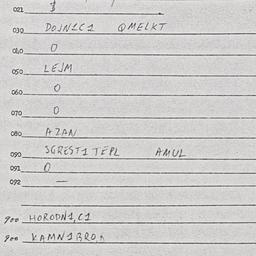 021
030 DOJN1C1 QMELKT
040 0
050 LEJM
060 0
070 0
080 AZAN
090 SGREST1 TEPL AMUL
091 0
092 —
900 HORODN1,C1
900 KAMN1BROA